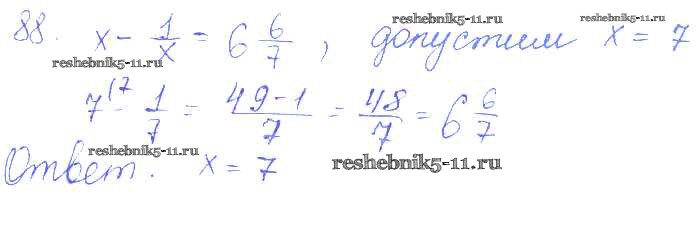 88. x - 1/x = 6 6/7, допустим x = 7
7 - 1/7 = (49-1)/7 = 48/7 = 6 6/7
Ответ: x = 7
reshebnik5-11.ru
reshebnik5-11.ru
reshebnik5-11.ru
reshebnik5-11.ru
reshebnik5-11.ru